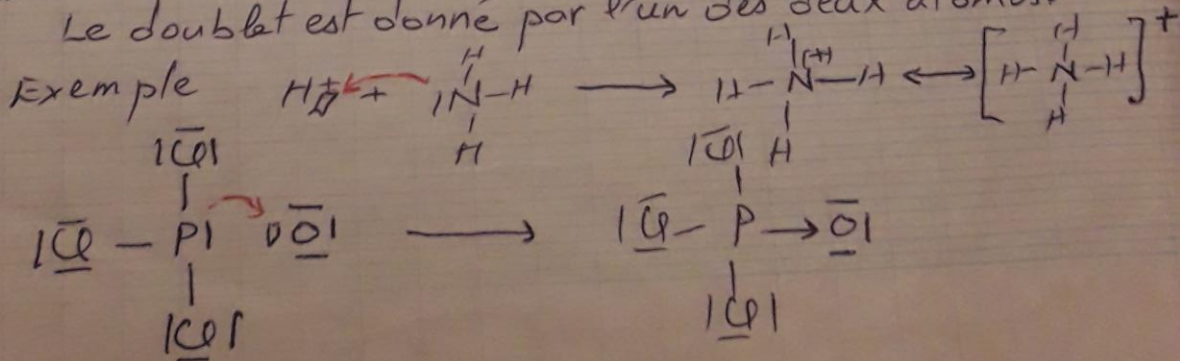 Le doublet est donné par l'un des deux atomes.
Exemple H+ + |N-H → H-N(+)-H ↔ [H-N-H]+
H H H H
H H
|Cl| |Cl|
|Cl - P| □O| → |Cl - P → O|
|Cl| |Cl|